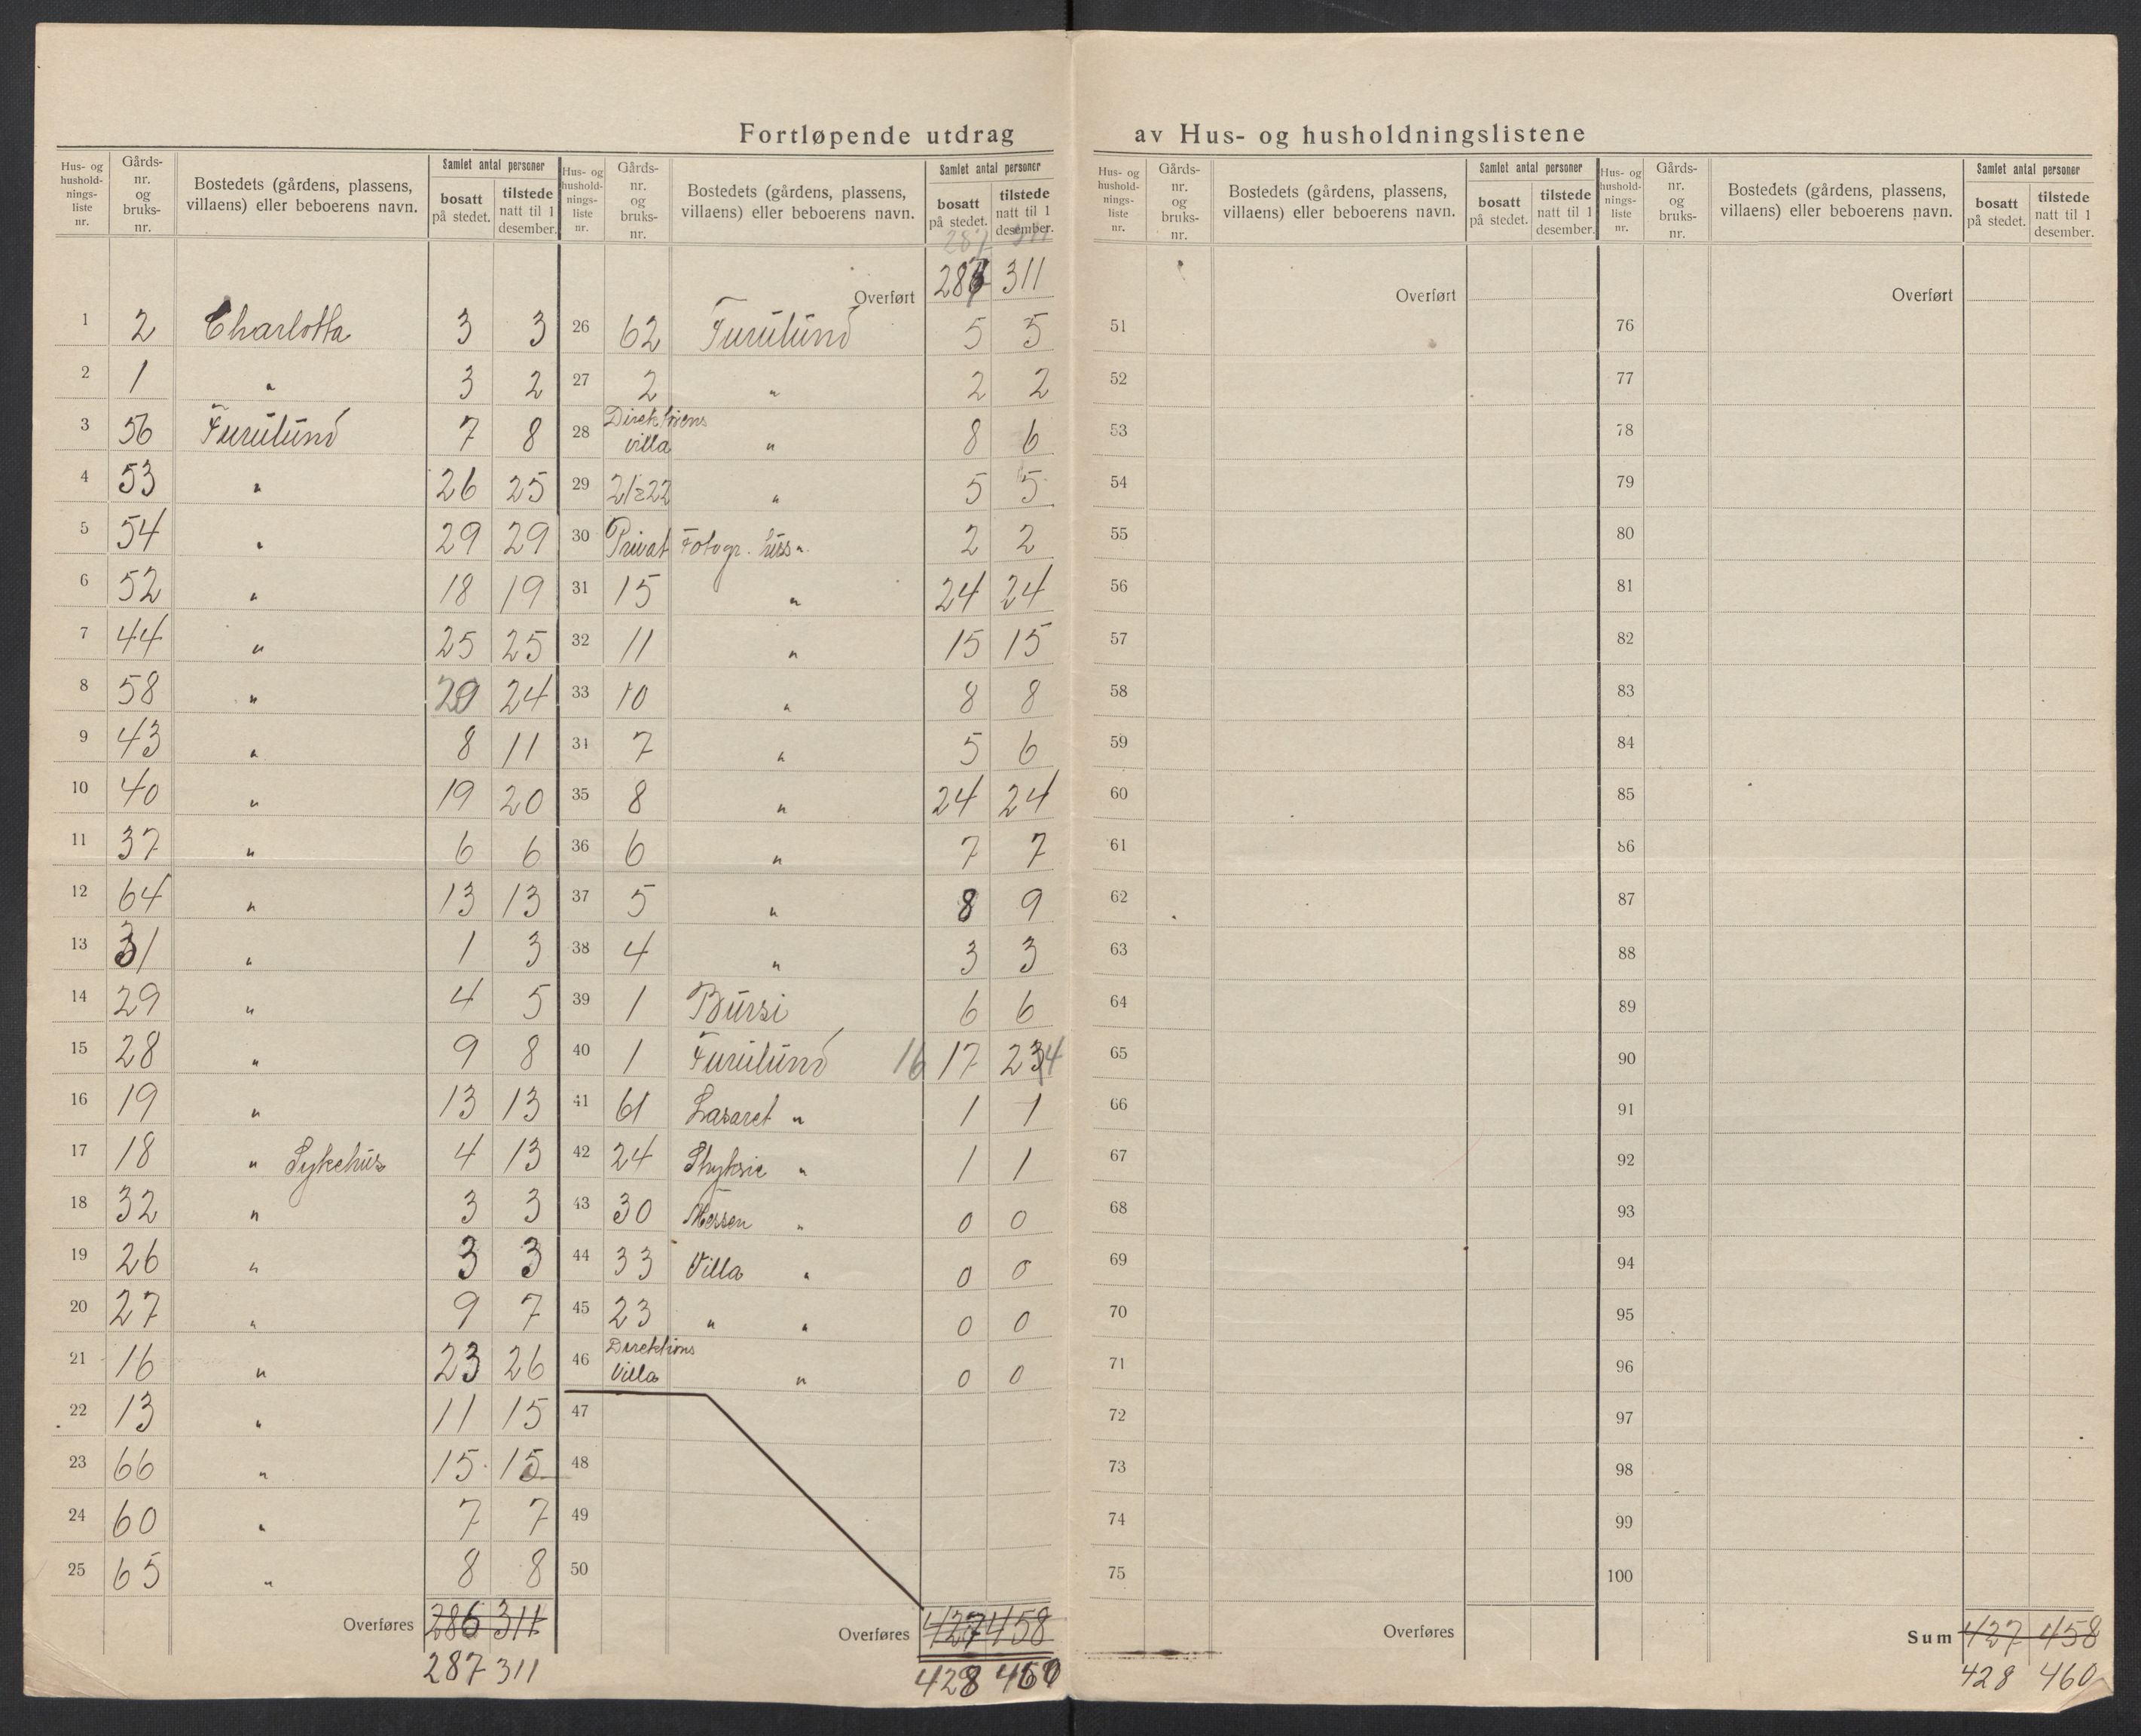 Fortløpende utdrag av Hus- og husholdningslistene
Hus- og hushold-nings-liste nr. | Gårds-nr. og bruks-nr. | Bostedets (gårdens, plassens, villaens) eller beboerens navn. | Samlet antal personer | bosatt på stedet. | tilstede natt til 1 desember.
1 2 Charlotta 3 3
2 1 " 3 2
3 56 Furulund 7 8
4 53 " 26 25
5 54 " 29 29
6 52 " 18 19
7 44 " 25 25
8 58 " 20 24
9 43 " 8 11
10 40 " 19 20
11 37 " 6 6
12 64 " 13 13
13 31 " 1 3
14 29 " 4 5
15 28 " 9 8
16 19 " 13 13
17 18 " Sykehus 4 13
18 32 " 3 3
19 26 " 3 3
20 27 " 9 7
21 16 " 23 26
22 13 " 11 15
23 66 " 15 15
24 60 " 7 7
25 65 " 8 8
Overføres 286 311
287 311
Hus- og hushold-nings-liste nr. | Gårds-nr. og bruks-nr. | Bostedets (gårdens, plassens, villaens) eller beboerens navn. | Samlet antal personer | bosatt på stedet. | tilstede natt til 1 desember.
287 311
Overført 287 311
26 62 Furulund 5 5
27 2 " 2 2
28 villa " 8 6
29 " 5 5
30 Privat Fotogr. hus " 2 2
31 15 " 24 24
32 11 " 15 15
33 10 " 8 8
34 7 " 5 6
35 8 " 24 24
36 6 " 7 7
37 5 " 8 9
38 4 " 3 3
39 1 Bursi 6 6
40 1 Furulund 16 17 23 4
41 61 Lasaret " 1 1
42 24 " 1 1
43 30 Messen " 0 0
44 33 Villa " 0 0
45 23 " " 0 0
46 Direktions Villa " 0 0
47
48
49
50
Overføres 427 458
428 460
Hus- og hushold-nings-liste nr. | Gårds-nr. og bruks-nr. | Bostedets (gårdens, plassens, villaens) eller beboerens navn. | Samlet antal personer | bosatt på stedet. | tilstede natt til 1 desember.
Overført
51
52
53
54
55
56
57
58
59
60
61
62
63
64
65
66
67
68
69
70
71
72
73
74
75
Overføres
Hus- og hushold-nings-liste nr. | Gårds-nr. og bruks-nr. | Bostedets (gårdens, plassens, villaens) eller beboerens navn. | Samlet antal personer | bosatt på stedet. | tilstede natt til 1 desember.
Overført
76
77
78
79
80
81
82
83
84
85
86
87
88
89
90
91
92
93
94
95
96
97
98
99
100
Sum 427 458
428 460